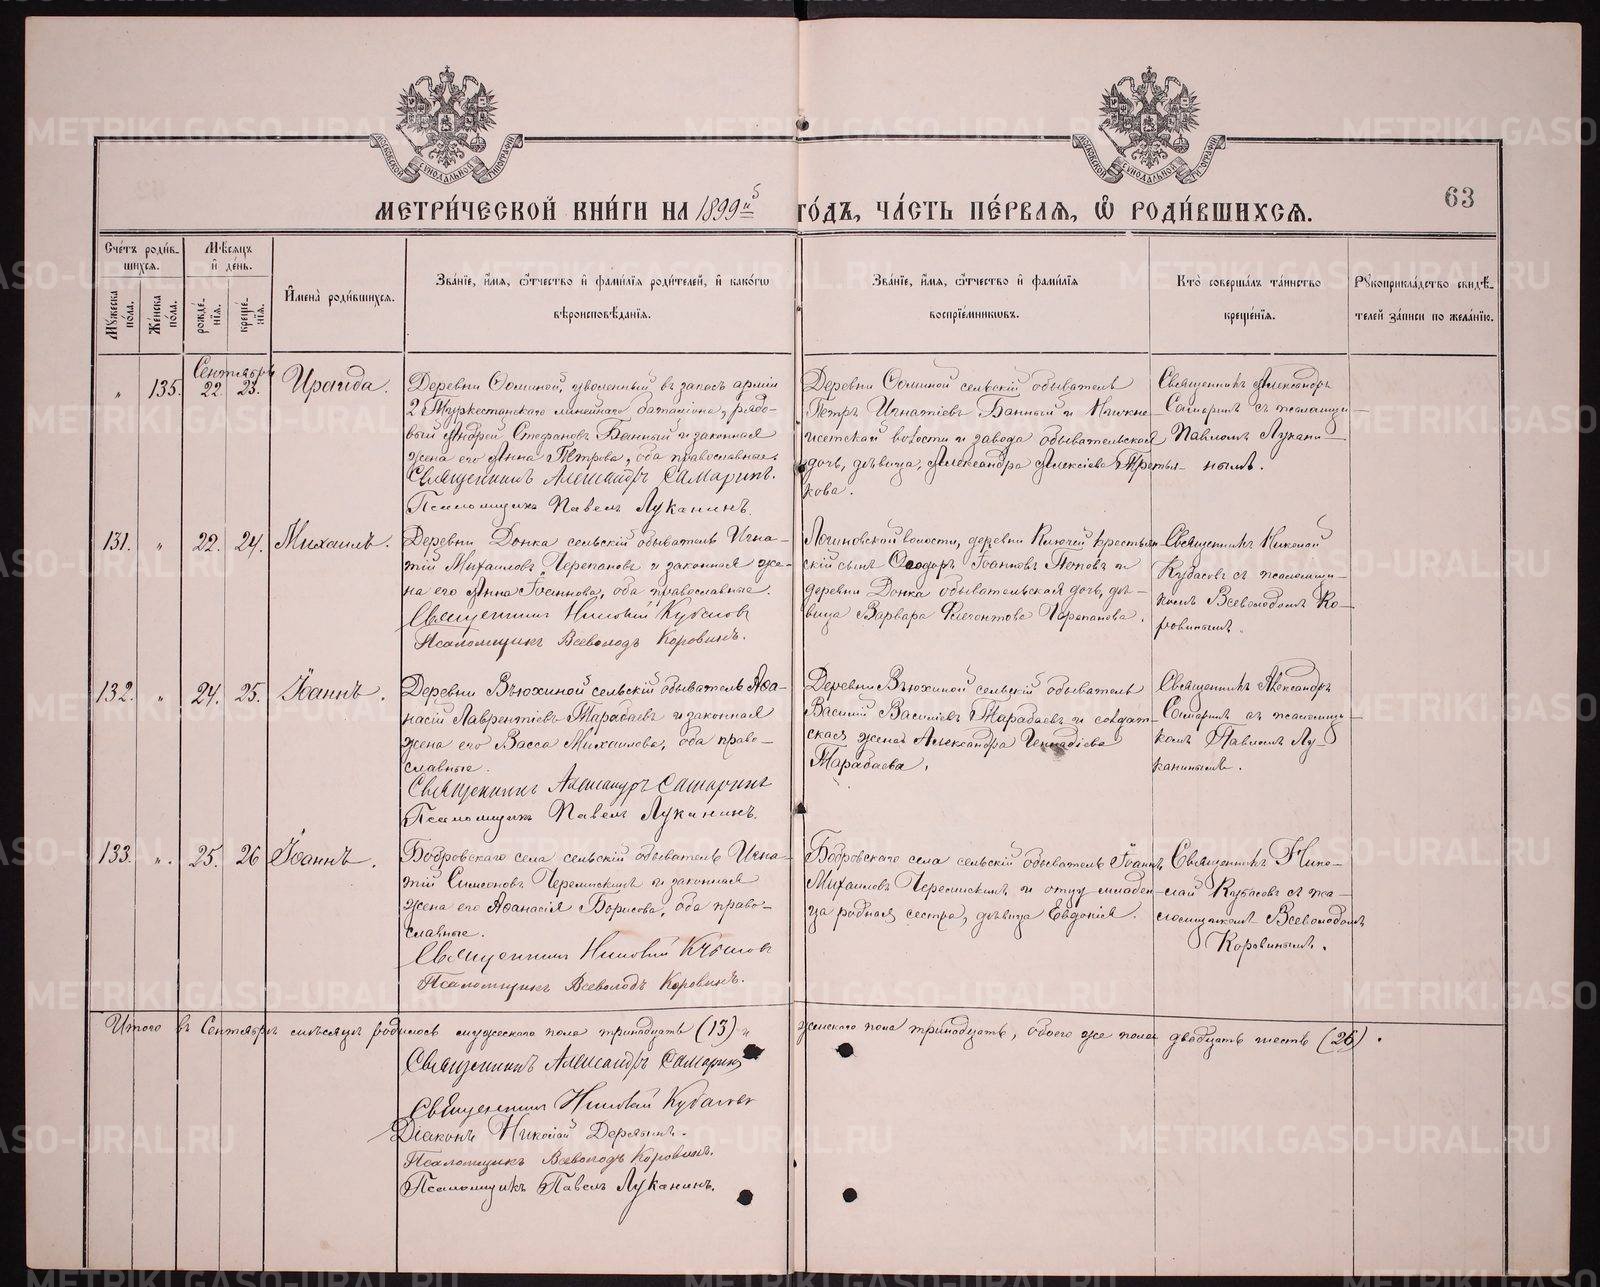 МЕТРИ́ЧЕСКОЙ КНИ́ГИ НА 1899й ГО́ДЪ, ЧА́СТЬ ПЕ́РВАЯ, Ѡ҆ РОДИ́ВШИХСЯ.
63
Сче́тъ роди́вшихся.
Мꙋжеска по́ла.
Же́нска по́ла.
Мѣ́сяцъ и҆ де́нь.
рожде́нїя.
креще́нїя.
И҆мена̀ роди́вшихся.
Зва́нїе, и҆́мя, ѻ҆́тчество и҆ фами́лїя роди́телей, и҆ како́гѡ
вѣроисповѣ́данїя.
Зва́нїе, и҆́мя, ѻ҆́тчество и҆ фами́лїя
воспрїе́мникѡвъ.
Кто̀ соверша́лъ та́инство
креще́нїя.
Рꙋкоприкла́дство свидѣ́-
телей за́писи по жела́нїю.
Сентябрь
" 135. 22 23. Ираида.
Деревни Соминой, уволенный въ запасъ армiи
2 Туркестанскаго линейнаго баталiона, рядо-
вый Андрей Стефановъ Банный и законная
жена его Анна Петрова, оба православные.
Священникъ Александръ Самаринъ.
Псаломщикъ Павелъ Луканинъ.
Деревни Соминой сельскiй обыватель
Петръ Игнатiевъ Банный и Нижне-
исетской волости и завода обывательская
дочь, дѣвица, Александра Алексiева Третья-
кова.
Священникъ Александръ
Самаринъ съ псаломщи-
Павломъ Лукани-
нымъ.
131. " 22. 24. Михаилъ.
Деревни Донка сельскiй обыватель Игна-
тiй Михаиловъ Черепановъ и законная же-
на его Анна Iоаннова, оба православные.
Священникъ Николай Кубасовъ
Псаломщикъ Всеволодъ Коровинъ.
Логиновской волости, деревни Ключей крестьян-
скiй сынъ Ѳеодоръ Iоанновъ Поповъ и
деревни Донка обывательская дочь, дѣ-
вица Варвара Флегонтова Черепанова.
Священникъ Николай
Кубасовъ съ псаломщи-
комъ Всеволодомъ Ко-
ровинымъ.
132. " 24. 25. Iоаннъ.
Деревни Вьюхиной сельскiй обыватель Аѳа-
насiй Лаврентiевъ Тарабаевъ и законная
жена его Васса Михаилова, оба право-
славные.
Священникъ Александръ Самаринъ
Псаломщикъ Павелъ Луканинъ.
Деревни Вьюхиной сельскiй обыватель
Василiй Василiевъ Тарабаевъ и солдат-
ская жена Александра Геннадiева
Тарабаева.
Священникъ Александръ
Самаринъ съ псаломщи-
комъ Павломъ Лу-
канинымъ.
133. " 25. 26 Iоаннъ.
Бобровскаго села сельскiй обыватель Игна-
тiй Симеоновъ Черемискинъ и законная
жена его Аѳанасiя Борисова, оба право-
славные.
Священникъ Николай Кубасовъ
Псаломщикъ Всеволодъ Коровинъ.
Бобровскаго села сельскiй обыватель Iоаннъ
Михаиловъ Черемискинъ и отцу младен-
ца родная сестра, дѣвица Евдокiя.
Священникъ Нико-
лай Кубасовъ съ пса-
ломщикомъ Всеволодомъ
Коровинымъ.
Итого въ Сентябрѣ мѣсяцѣ родилось мужескаго пола тринадцать (13) и женскаго пола тринадцать, обоего же пола двадцать шесть (26).
Священникъ Александръ Самаринъ
Священникъ Николай Кубасовъ
Дiаконъ Николай Дерябинъ.
Псаломщикъ Всеволодъ Коровинъ.
Псаломщикъ Павелъ Луканинъ.
METRIKI.GASO-URAL.RU